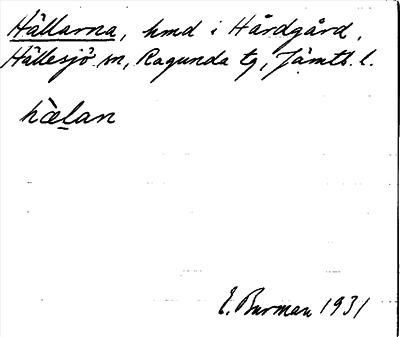 Hällarna, hmd i Hårdgård,
Hällesjö sn, Ragunda tg, Jämtl. l.
hæ̀lan
E. Burman 1931